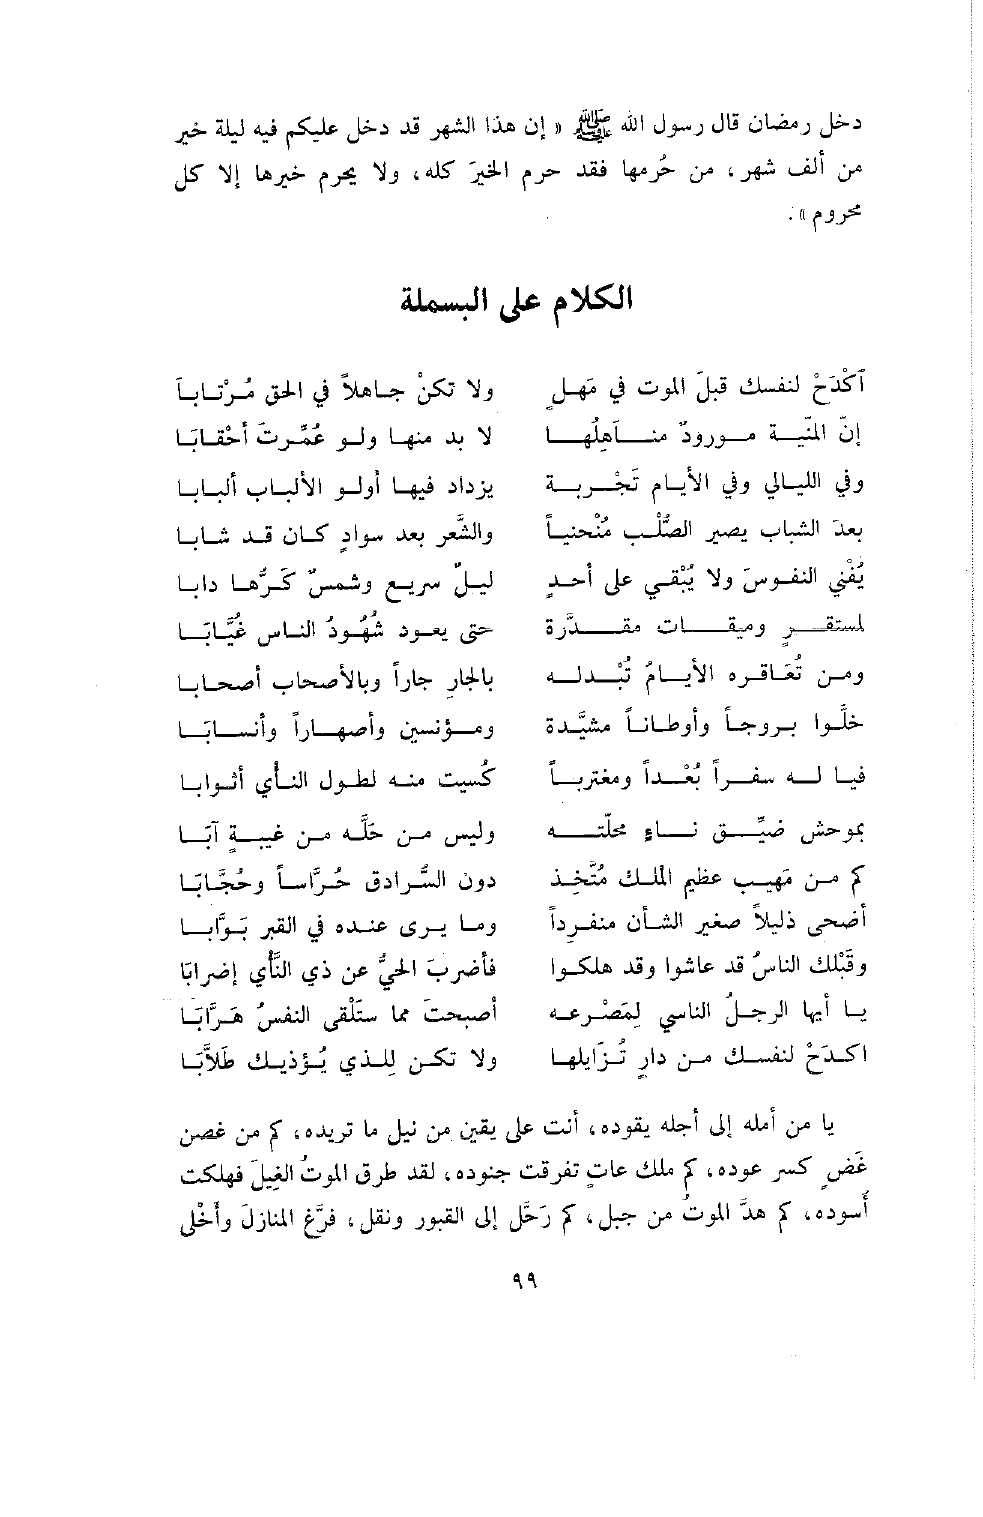 دخل رمضان قال رسول الله ﷺ « إن هذا الشهر قد دخل عليكم فيه ليلة خير
من ألف شهر، من حُرمها فقد حرم الخيرَ كله، ولا يحرم خيرها إلا كل
محروم » .
الكلام على البسملة
آكْدَحْ لنفسك قبلَ الموت في مَهلٍ ولا تكنْ جاهلاً في الحق مُرْتابَا
إنّ المنيّة مورودٌ مناهلُها لا بد منها ولو عُمِّرتَ أحْقابَا
وفي الليالي وفي الأيام تَجْربة يزداد فيها أولو الألباب ألبابا
بعدَ الشباب يصير الصُّلب مُنْحنياً والشَّعر بعد سوادٍ كان قد شابا
يُفْني النفوسَ ولا يُبْقي على أحدٍ ليلٌ سريع وشمسٌ كَرُّها دابا
لمستقرٍ وميقات مقدَّرة حتى يعود شُهُودُ الناس غُيَّابَا
ومن تُعَاقره الأيامُ تُبْدله بالجارِ جاراً وبالأصحاب أصحابا
خلَّوا بروجاً وأوطاناً مشيَّدة ومؤنسين وأصهاراً وأنسابَا
فيا له سفراً بُعْداً ومغترباً كُسيت منه لطول النأي أثوابا
بموحش ضيِّق ناءٍ محلّته وليس من حَلَّه من غيبةٍ آبَا
كم من مَهيب عظيم الملك مُتَّخِذ دون السُّرادق حُرَّاساً وحُجَّابَا
أضحى ذليلاً صغير الشأن منفرداً وما يرى عنده في القبر بَوَّابا
وقَبْلك الناسُ قد عاشوا وقد هلكوا فأضربَ الحيُّ عن ذي النَّأي إضرابَا
يا أيها الرجلُ الناسي لِمَصْرعه أصبحتَ مما ستَلْقى النفسُ هَرَّابَا
اكدَحْ لنفسك من دارٍ تُزَايلها ولا تكن للذي يُؤذيك طَلاَّبَا
يا من أمله إلى أجله يقوده، أنت على يقين من نيل ما تريده، كم من غصن
غَضٍ كسر عوده، كم ملك عاتٍ تفرقت جنوده، لقد طرق الموتُ الغِيلَ فهلكت
أسوده، كم هدَّ الموتُ من جبل، كم رَحَّل إلى القبور ونقل، فرَّغ المنازلَ وأخْلى
٩٩